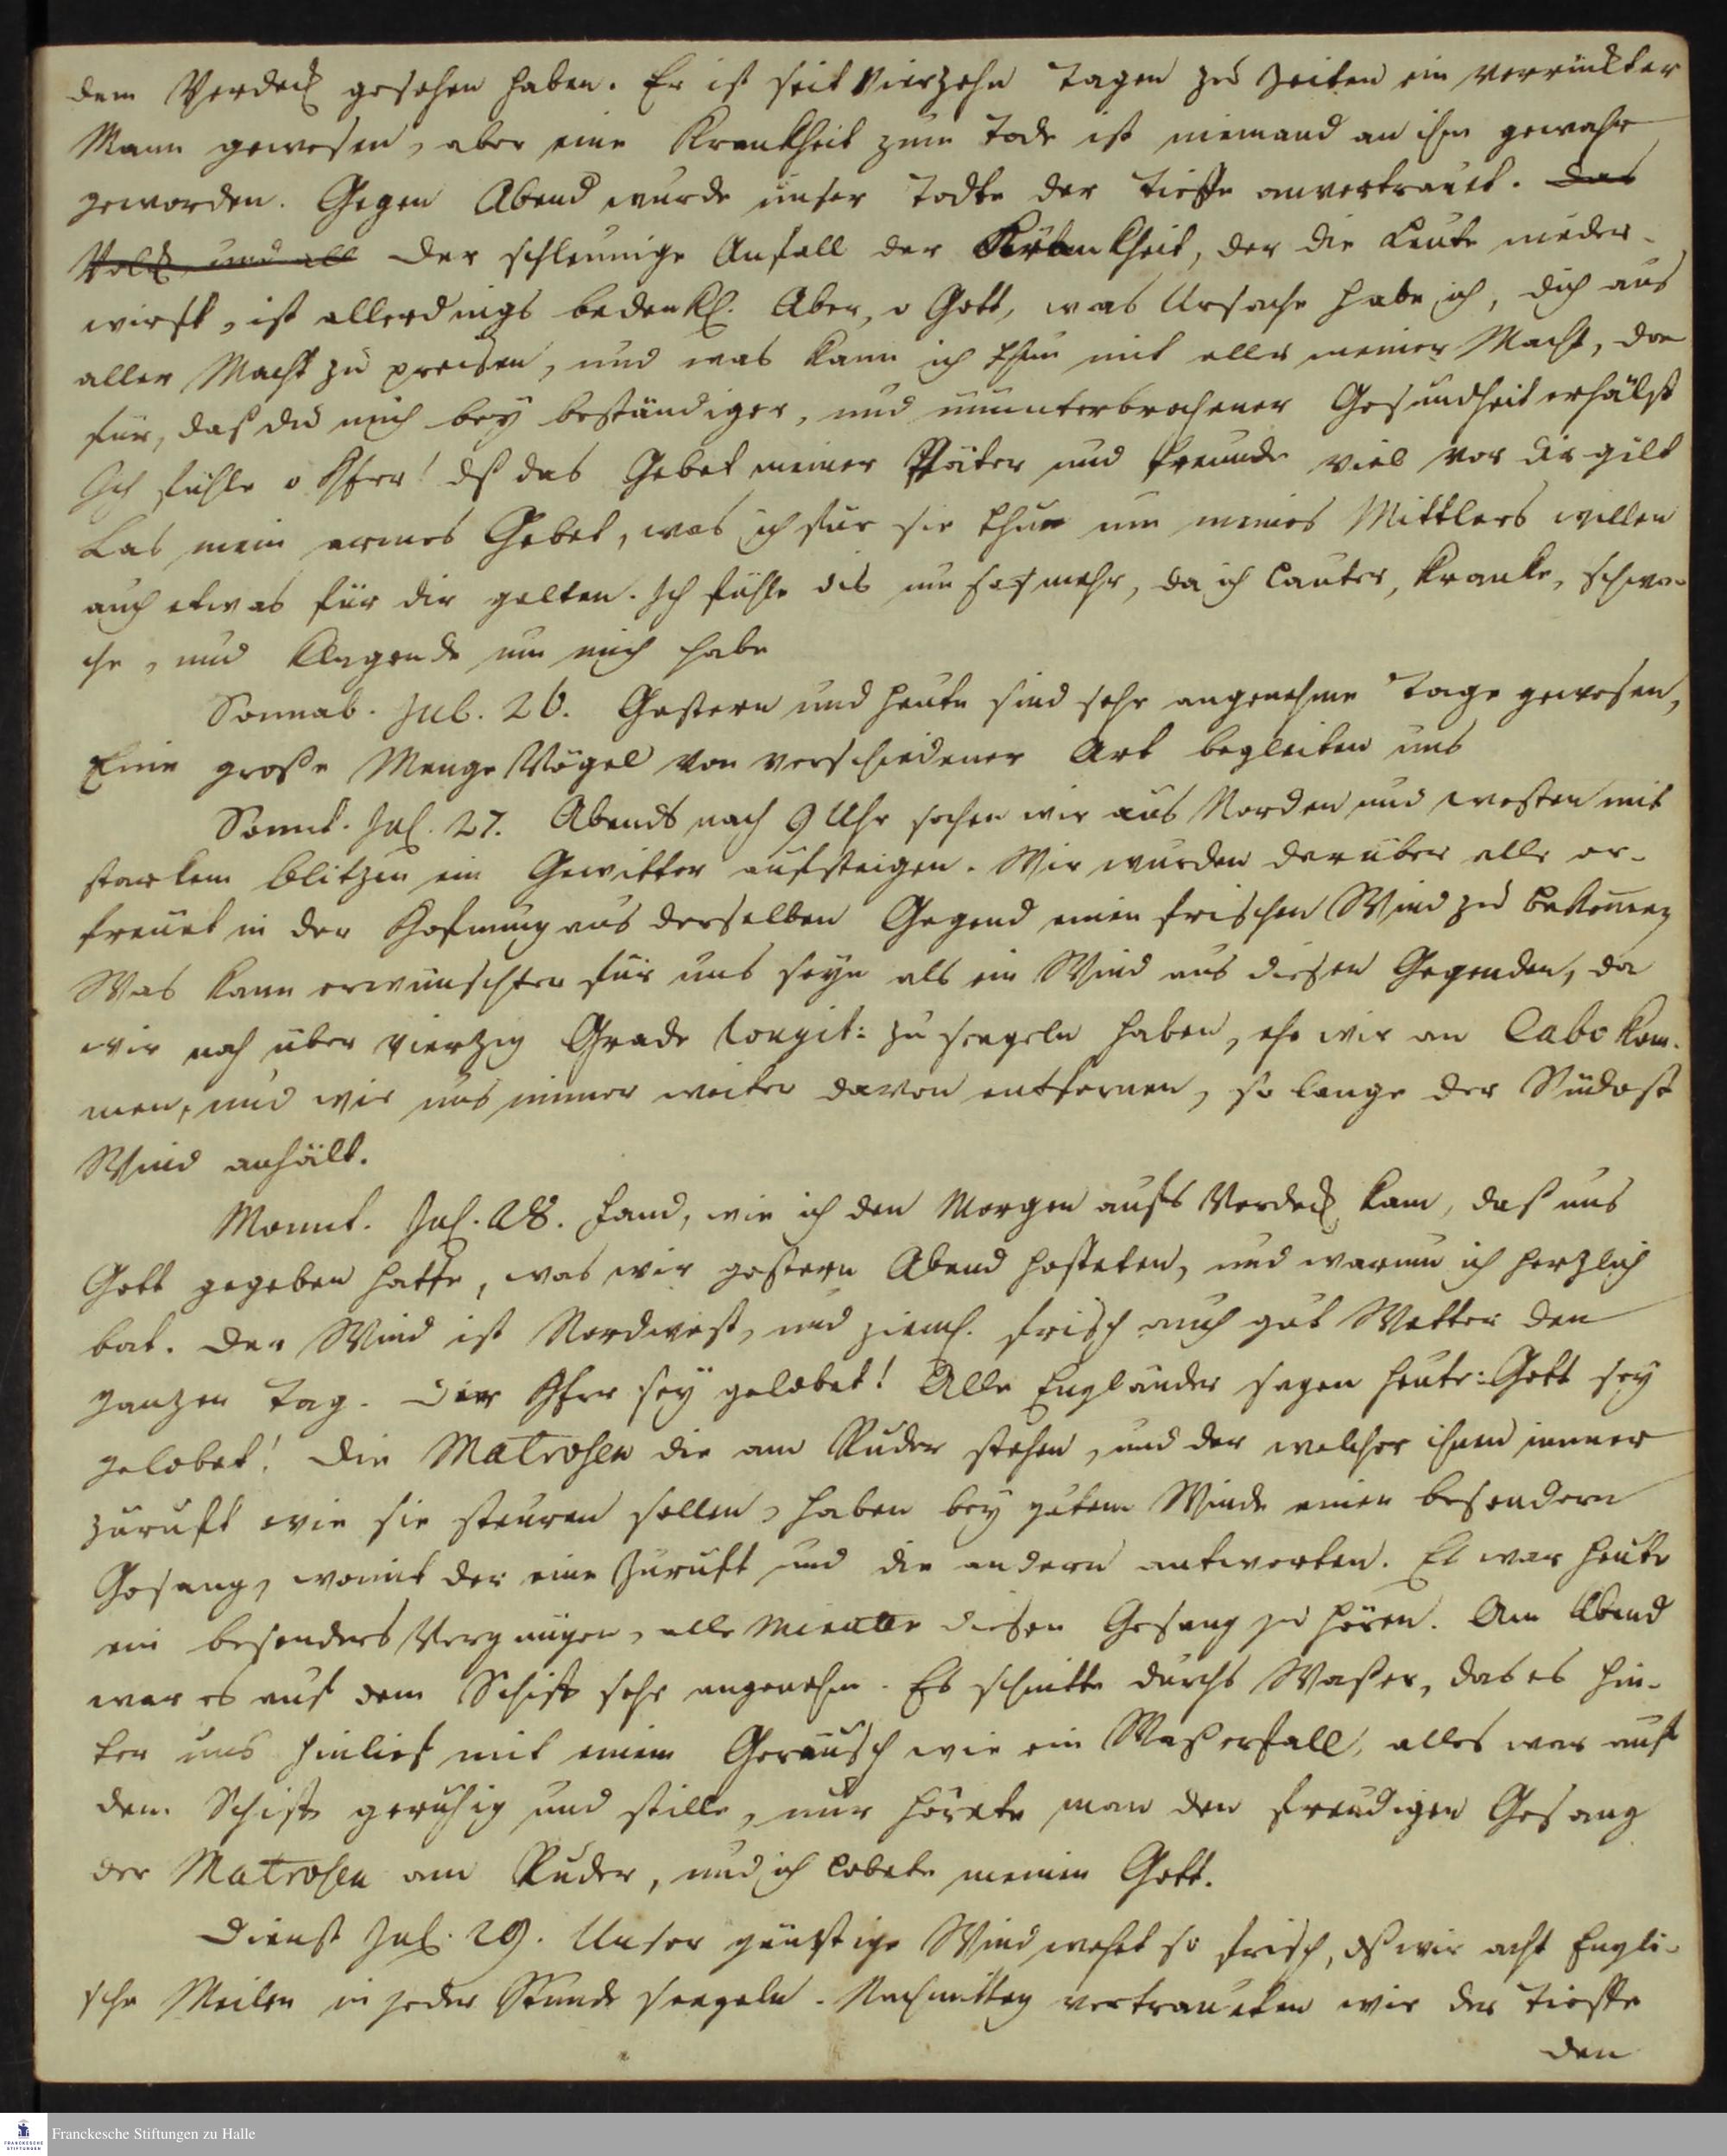 dem Verdeck gesehen haben. Er ist seit vierzehn Tagen zu Zeiten ein verrückter
Mann gewesen, aber eine Krankheit zum Tode ist niemand an ihm gewahr
geworden. Gegen Abend wurde unser Todte der Tieffe anvertrauet. Das
Volck, und all Der schleunige Anfall der Krankheit, der die Leute nieder-
wirft, ist allerdings bedenkl. Aber, o Gott, was Ursache habe ich, dich aus
aller Macht zu preisen, und was kann ich thun mit aller meiner Macht, da
für, daß du mich bey beständiger, und ununterbrochener Gesundheit erhälst
Ich fühle o Herr! dß das Gebet meiner Väter und Freunde viel vor dir gilt
Las mein armes Gebet, was ich für sie thue um meines Mittlers willen
auch etwas für dir gelten. Ich fühle dis um so mehr, da ich lauter, kranke, schwa-
che, und klagende um mich habe
Sonnab. Jul. 26. Gestern und heute sind sehr angenehme Tage gewesen,
Eine große Menge Vögel von verschiedener Art begleiten uns
Sonnt. Jul. 27. Abends nach 9 Uhr sahen wir aus Norden und westen mit
starkem blitzen ein Gewitter aufsteigen. Wir wurden darüber alle er-
freuet in der Hofnung aus derselben Gegend einen frischen Wind zu bekom̄en
Was kann erwünschter für uns seyn als ein Wind aus diesen Gegenden, da
wir noch über vierzig Grade longit: zu seegeln haben, ehe wir an Cabo kom-
men, und wir uns immer weiter davon entfernen, so lange der Südost
Wind anhält.
Mont. Jul. 28. fand, wie ich den Morgen aufs Verdeck kam, daß uns
Gott gegeben hatte, was wir gestern Abend hofteten, und warum ich herzlich
bat. Der Wind ist Nordwest, und zieml. frisch auch gut Wetter den
ganzen Tag. Der Herr sey gelobet! Alle Engländer sagen heute: Gott sey
gelobet! Die Matrosen die am Ruder stehen, und der welcher ihnen immer
zuruft wie sie steuren sollen, haben bey gutem Winde einen besondern
Gesang, womit der eine zuruft und die andern antworten. Es war heute
ein besonders Vergnügen, alle Minute diesen Gesang zu hören. Am Abend
war es auf dem Schiff sehr angenehm. Es schnitte durchs Waßer, das es hin-
ter uns hinlief mit einem Geräusch wie ein Waßerfall, alles war auf
dem Schiff geruhig und stille, nur hörete man den freudigen Gesang
der Matrosen am Ruder, und ich lobete meinen Gott.
Dienst Jul. 29. Unser günstige Wind wehet so frisch, dß wir acht Engli-
sche Meilen in jeder Stunde seegeln. Nachmittag vertraueten wir der Tieffe
den
Franckesche Stiftungen zu Halle